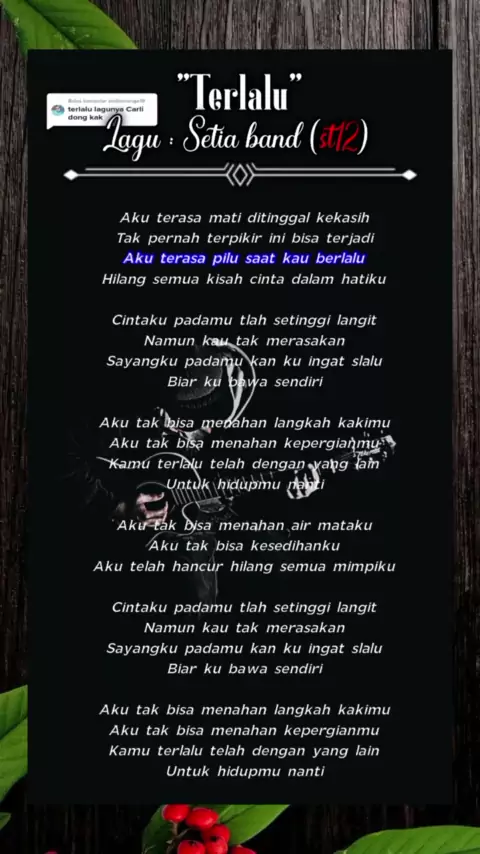 "Terlalu"
terlalu lagunya Carli
dong kak
Lagu : Setia band (st12)
Aku terasa mati ditinggal kekasih
Tak pernah terpikir ini bisa terjadi
Aku terasa pilu saat kau berlalu
Hilang semua kisah cinta dalam hatiku
Cintaku padamu tlah setinggi langit
Namun kau tak merasakan
Sayangku padamu kan ku ingat slalu
Biar ku bawa sendiri
Aku tak bisa menahan langkah kakimu
Aku tak bisa menahan kepergianmu
Kamu terlalu telah dengan yang lain
Untuk hidupmu nanti
Aku tak bisa menahan air mataku
Aku tak bisa kesedihanku
Aku telah hancur hilang semua mimpiku
Cintaku padamu tlah setinggi langit
Namun kau tak merasakan
Sayangku padamu kan ku ingat slalu
Biar ku bawa sendiri
Aku tak bisa menahan langkah kakimu
Aku tak bisa menahan kepergianmu
Kamu terlalu telah dengan yang lain
Untuk hidupmu nanti